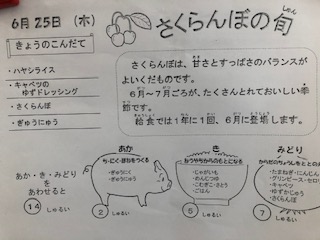 6月25日（木）
さくらんぼの旬
しゅん
きょうのこんだて
・ハヤシライス
・キャベツの
ゆずドレッシング
・さくらんぼ
・ぎゅうにゅう
さくらんぼは、甘さとすっぱさのバランスが
よいくだものです。
6月～7月ごろが、たくさんとれておいしい季
節です。
給食では1年に1回、6月に登場します。
あか・き・みどり
をあわせると
14 しゅるい
あか
ち・にく・ほねをつくる
・ぎゅうにく
・ぎゅうにゅう
2 しゅるい
き
・じゃがいも
・こむぎこ・さとう
・ごはん
5 しゅるい
みどり
・たまねぎ・にんじん
・キャベツ
・ゆずかじゅう
・さくらんぼ
7